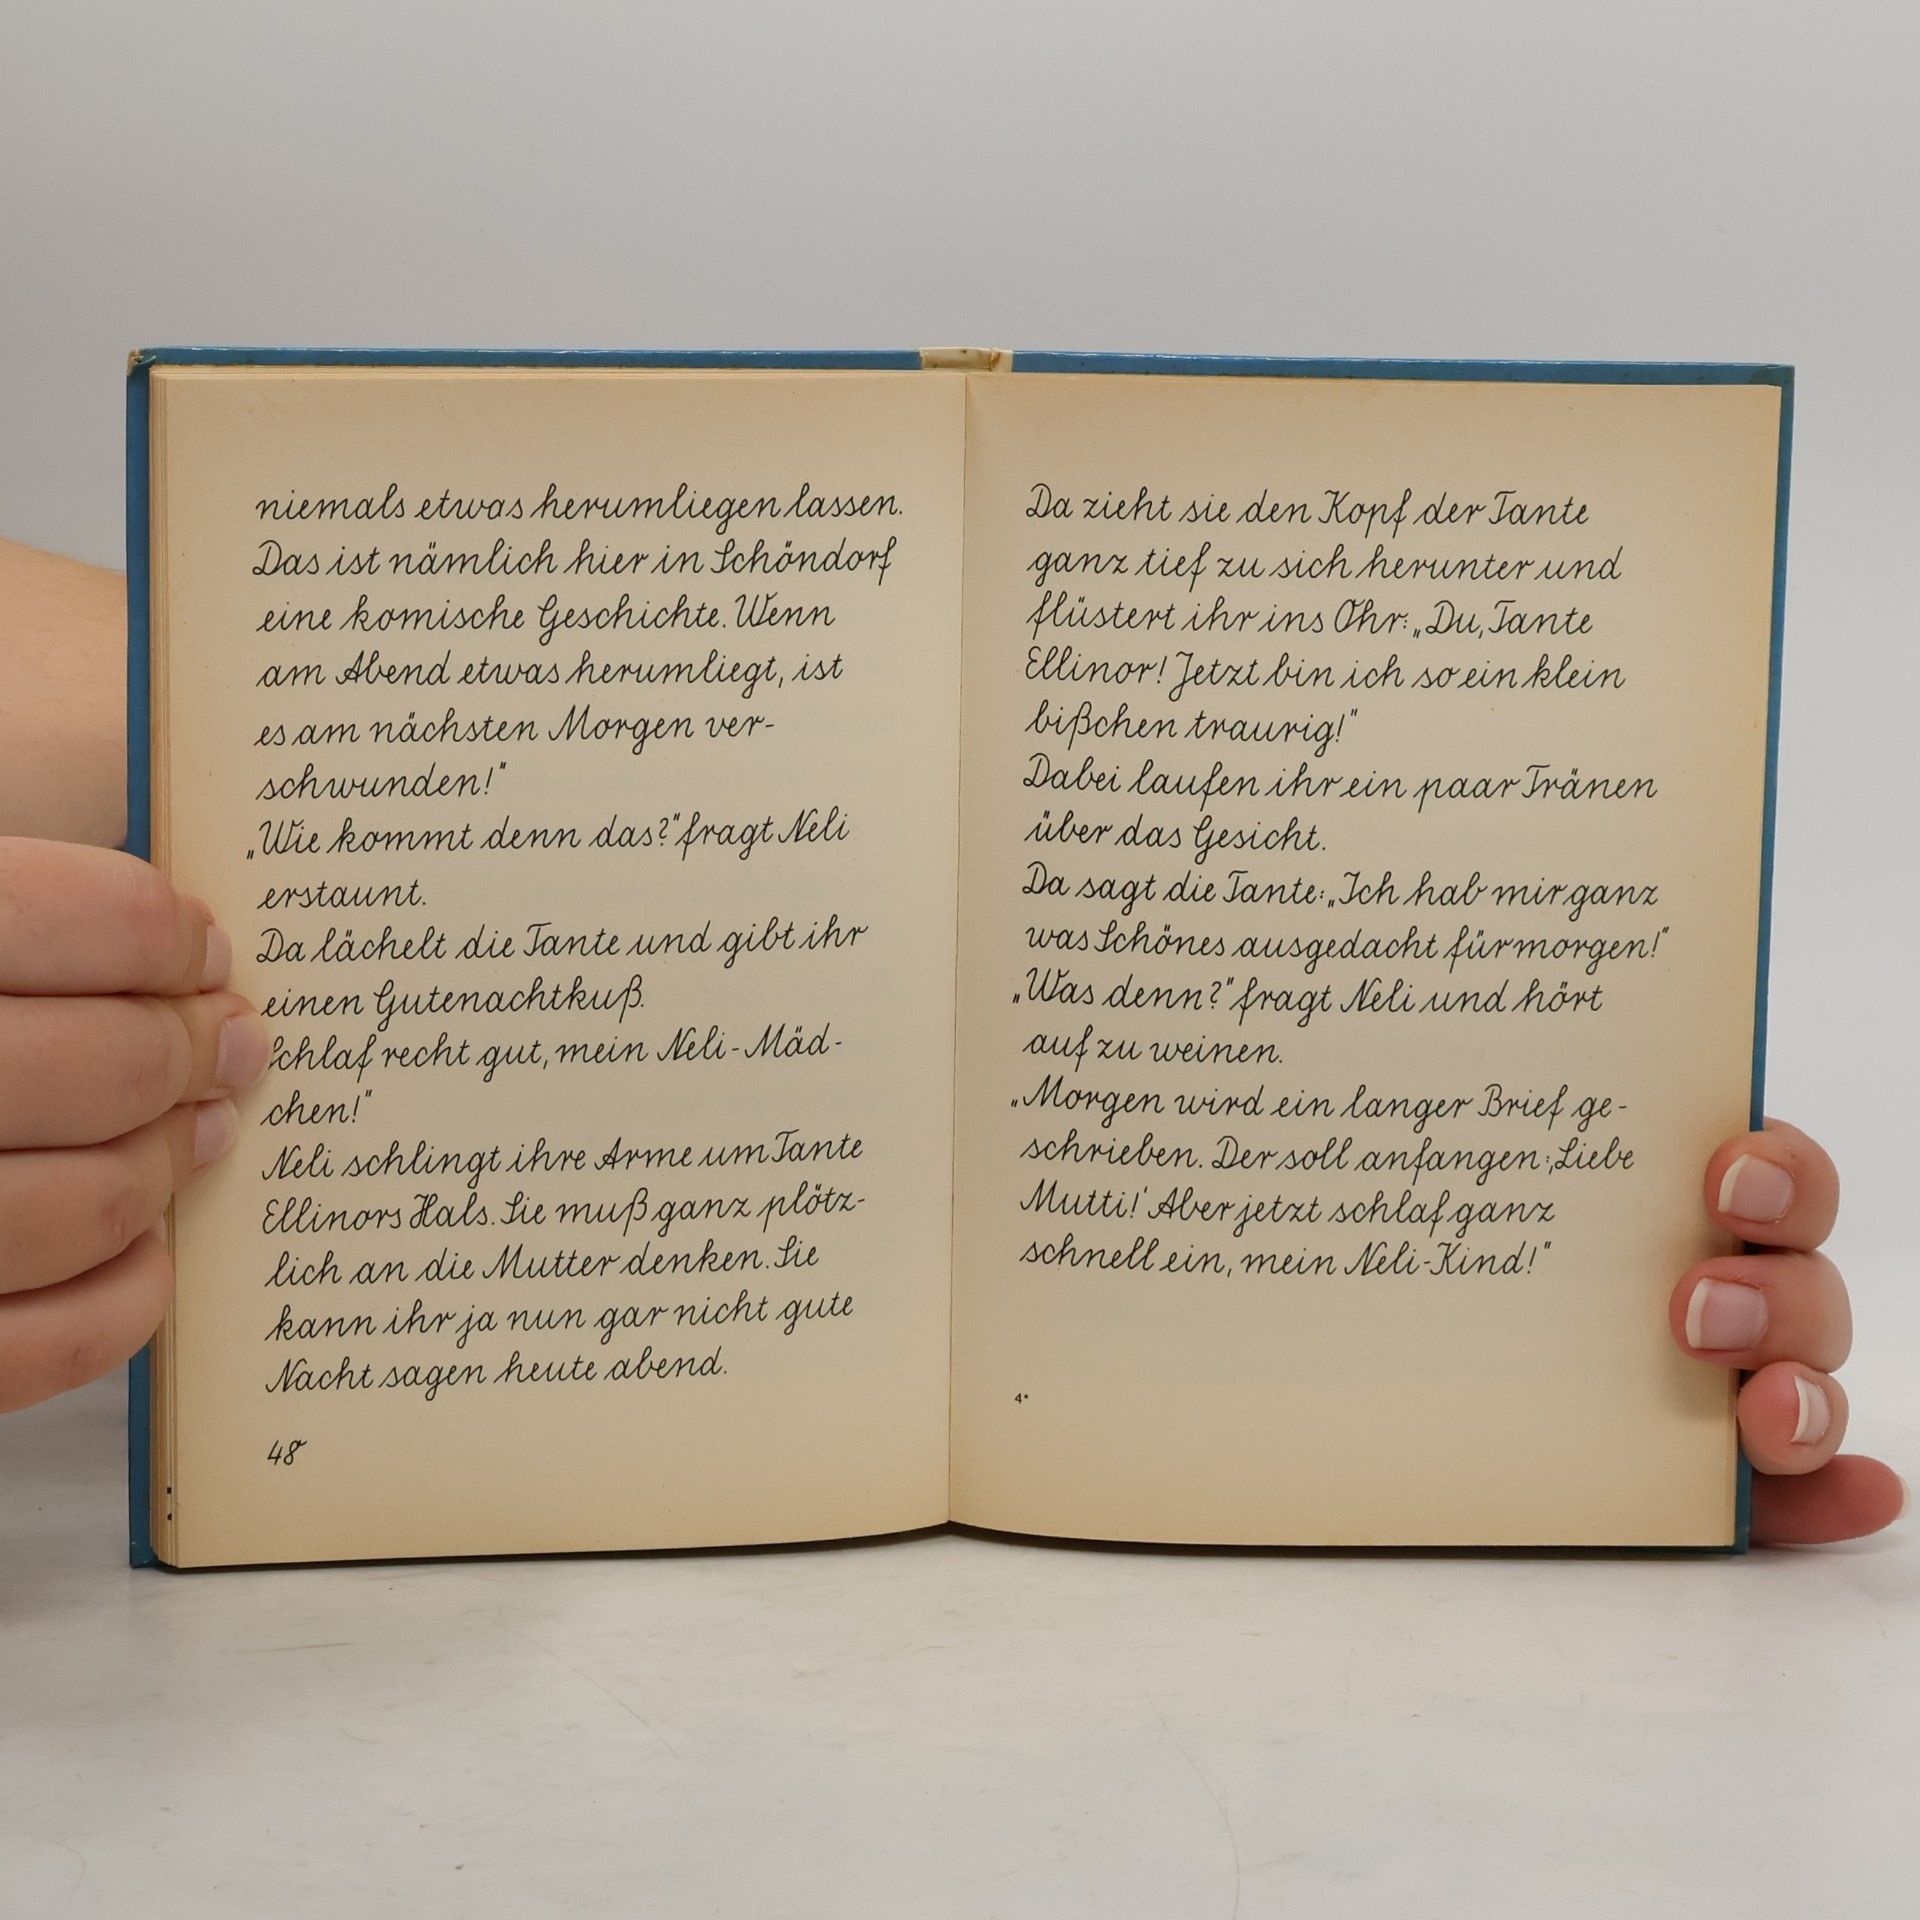 niemals etwas herumliegen lassen.
Das ist nämlich hier in Schöndorf
eine komische Geschichte. Wenn
am Abend etwas herumliegt, ist
es am nächsten Morgen ver-
schwunden!"
„Wie kommt denn das?" fragt Neli
erstaunt.
Da lächelt die Tante und gibt ihr
einen Gutenachtkuß.
Schlaf recht gut, mein Neli-Mäd-
chen!"
Neli schlingt ihre Arme um Tante
Ellinors Hals. Sie muß ganz plötz-
lich an die Mutter denken. Sie
kann ihr ja nun gar nicht gute
Nacht sagen heute abend.
48
Da zieht sie den Kopf der Tante
ganz tief zu sich herunter und
flüstert ihr ins Ohr: „Du, Tante
Ellinor! Jetzt bin ich so ein klein
bißchen traurig!"
Dabei laufen ihr ein paar Tränen
über das Gesicht.
Da sagt die Tante: „Ich hab mir ganz
was Schönes ausgedacht für morgen!"
„Was denn?" fragt Neli und hört
auf zu weinen.
„Morgen wird ein langer Brief ge-
schrieben. Der soll anfangen: ‚Liebe
Mutti!' Aber jetzt schlaf ganz
schnell ein, mein Neli-Kind!"
4*